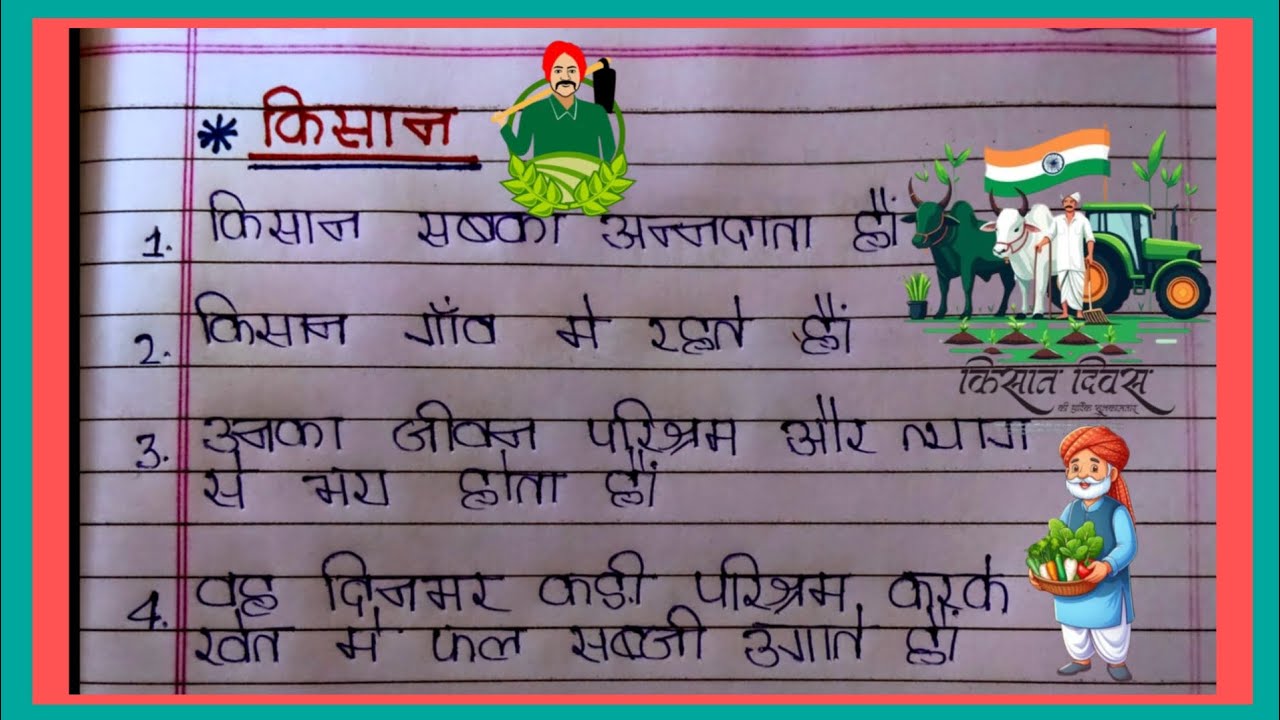 * किसान
1. किसान सबका अन्नदाता हैं
2. किसान गाँव मे रहते हैं
3. उनका जीवन परिश्रम और त्याग
से भरा होता हैं
4. वह दिनभर कडी परिश्रम करके
खेत मे फल सब्जी उगाते हैं
किसान दिवस
की हार्दिक